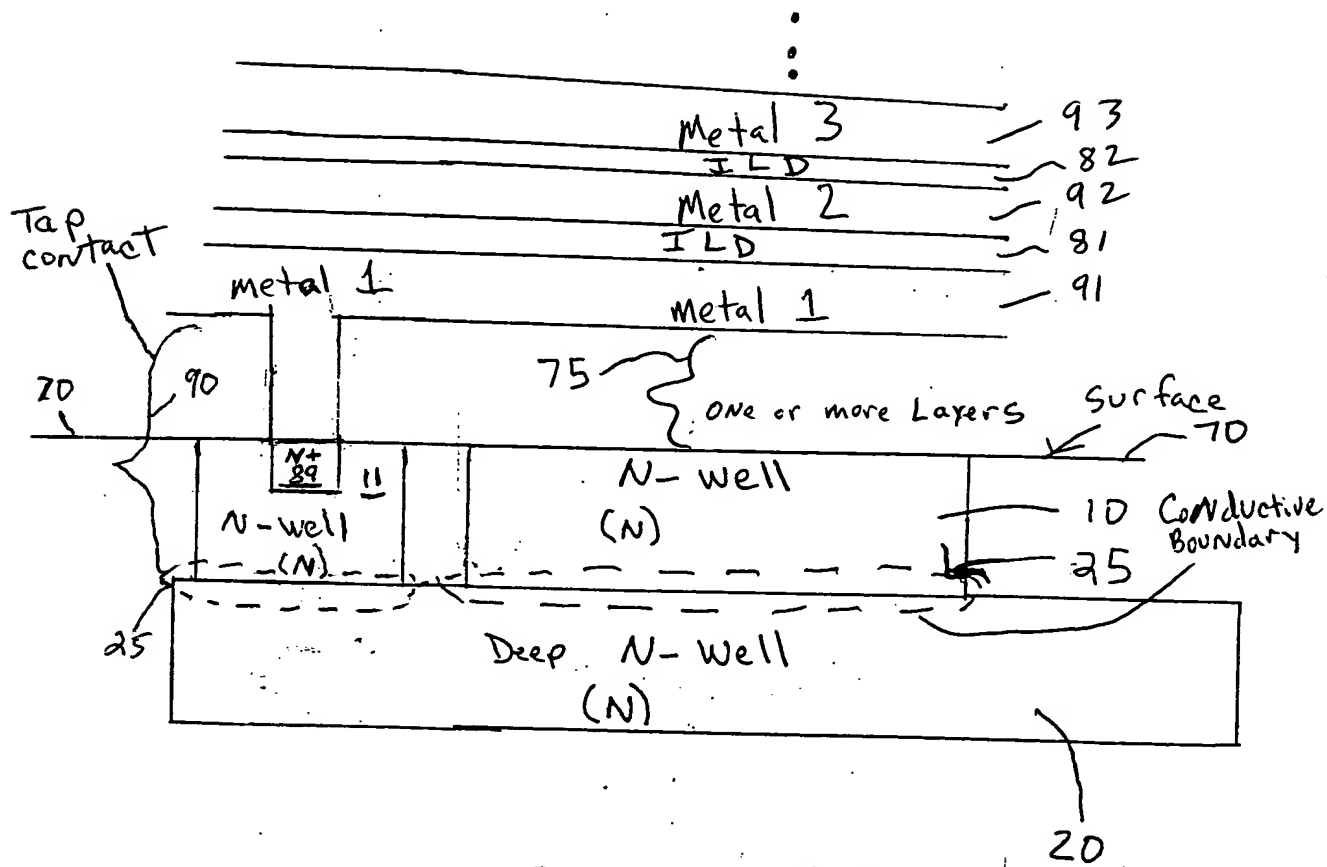 Metal 3
93
ILD
82
Metal 2
92
ILD
81
Tap
contact
metal 1
metal 1
91
75
one or more Layers
Surface
70
70
90
N+
89
11
N-well
(N)
N-well
(N)
10
Conductive
Boundary
25
25
Deep N-well
(N)
20